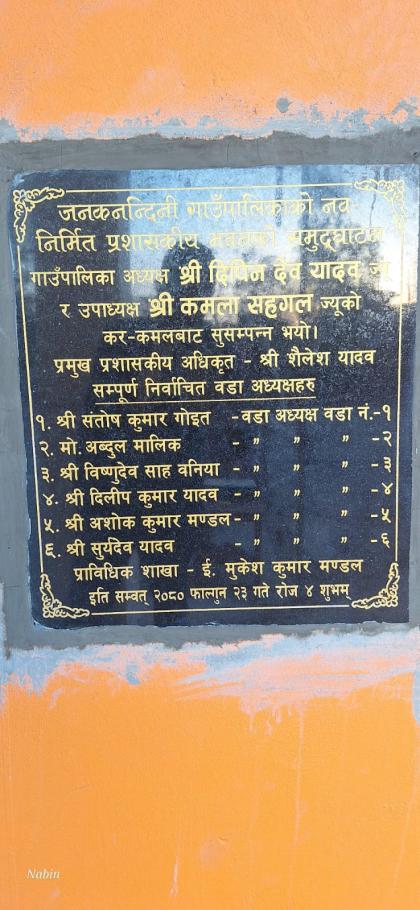 जनकनन्दिनी गाउँपालिकाको नव-
निर्मित प्रशासकीय भवनको समुद्घाटन
गाउँपालिका अध्यक्ष श्री दिपिन देव यादव ज्यू
र उपाध्यक्ष श्री कमला सहगल ज्यूको
कर-कमलबाट सुसम्पन्न भयो।
प्रमुख प्रशासकीय अधिकृत - श्री शैलेश यादव
सम्पूर्ण निर्वाचित वडा अध्यक्षहरु
१. श्री संतोष कुमार गोइत - वडा अध्यक्ष वडा नं.-१
२. मो. अब्दुल मालिक - " " " -२
३. श्री विष्णुदेव साह वनिया - " " " -३
४. श्री दिलीप कुमार यादव - " " " -४
५. श्री अशोक कुमार मण्डल - " " " -५
६. श्री सुर्यदेव यादव - " " " -६
प्राविधिक शाखा - ई. मुकेश कुमार मण्डल
इति सम्वत् २०८० फाल्गुन २३ गते रोज ४ शुभम्
Nabin